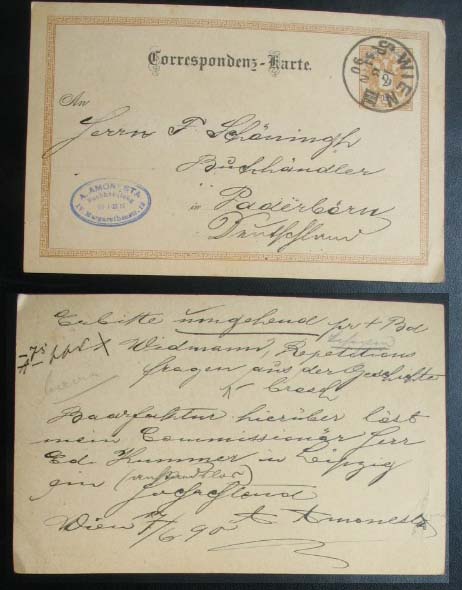 Correspondenz-Karte.
An
Herrn F Schöningh
Buchhändler
in Paderborn
Deutschland
WIEN
90
2
A. AMONESTA
Buchhandlung
WIEN
IV Margarethenstr.
Erbitte umgehend pr + Bd
Widmann, Repetitions
fragen aus der Geschichte
brosch
Baarfaktur hierüber löst
mein Commissionär Herr
Ed. Hummer in Leipzig
ein (anstandslos)
Hochachtend
Wien 17/6 90 A Amonesta